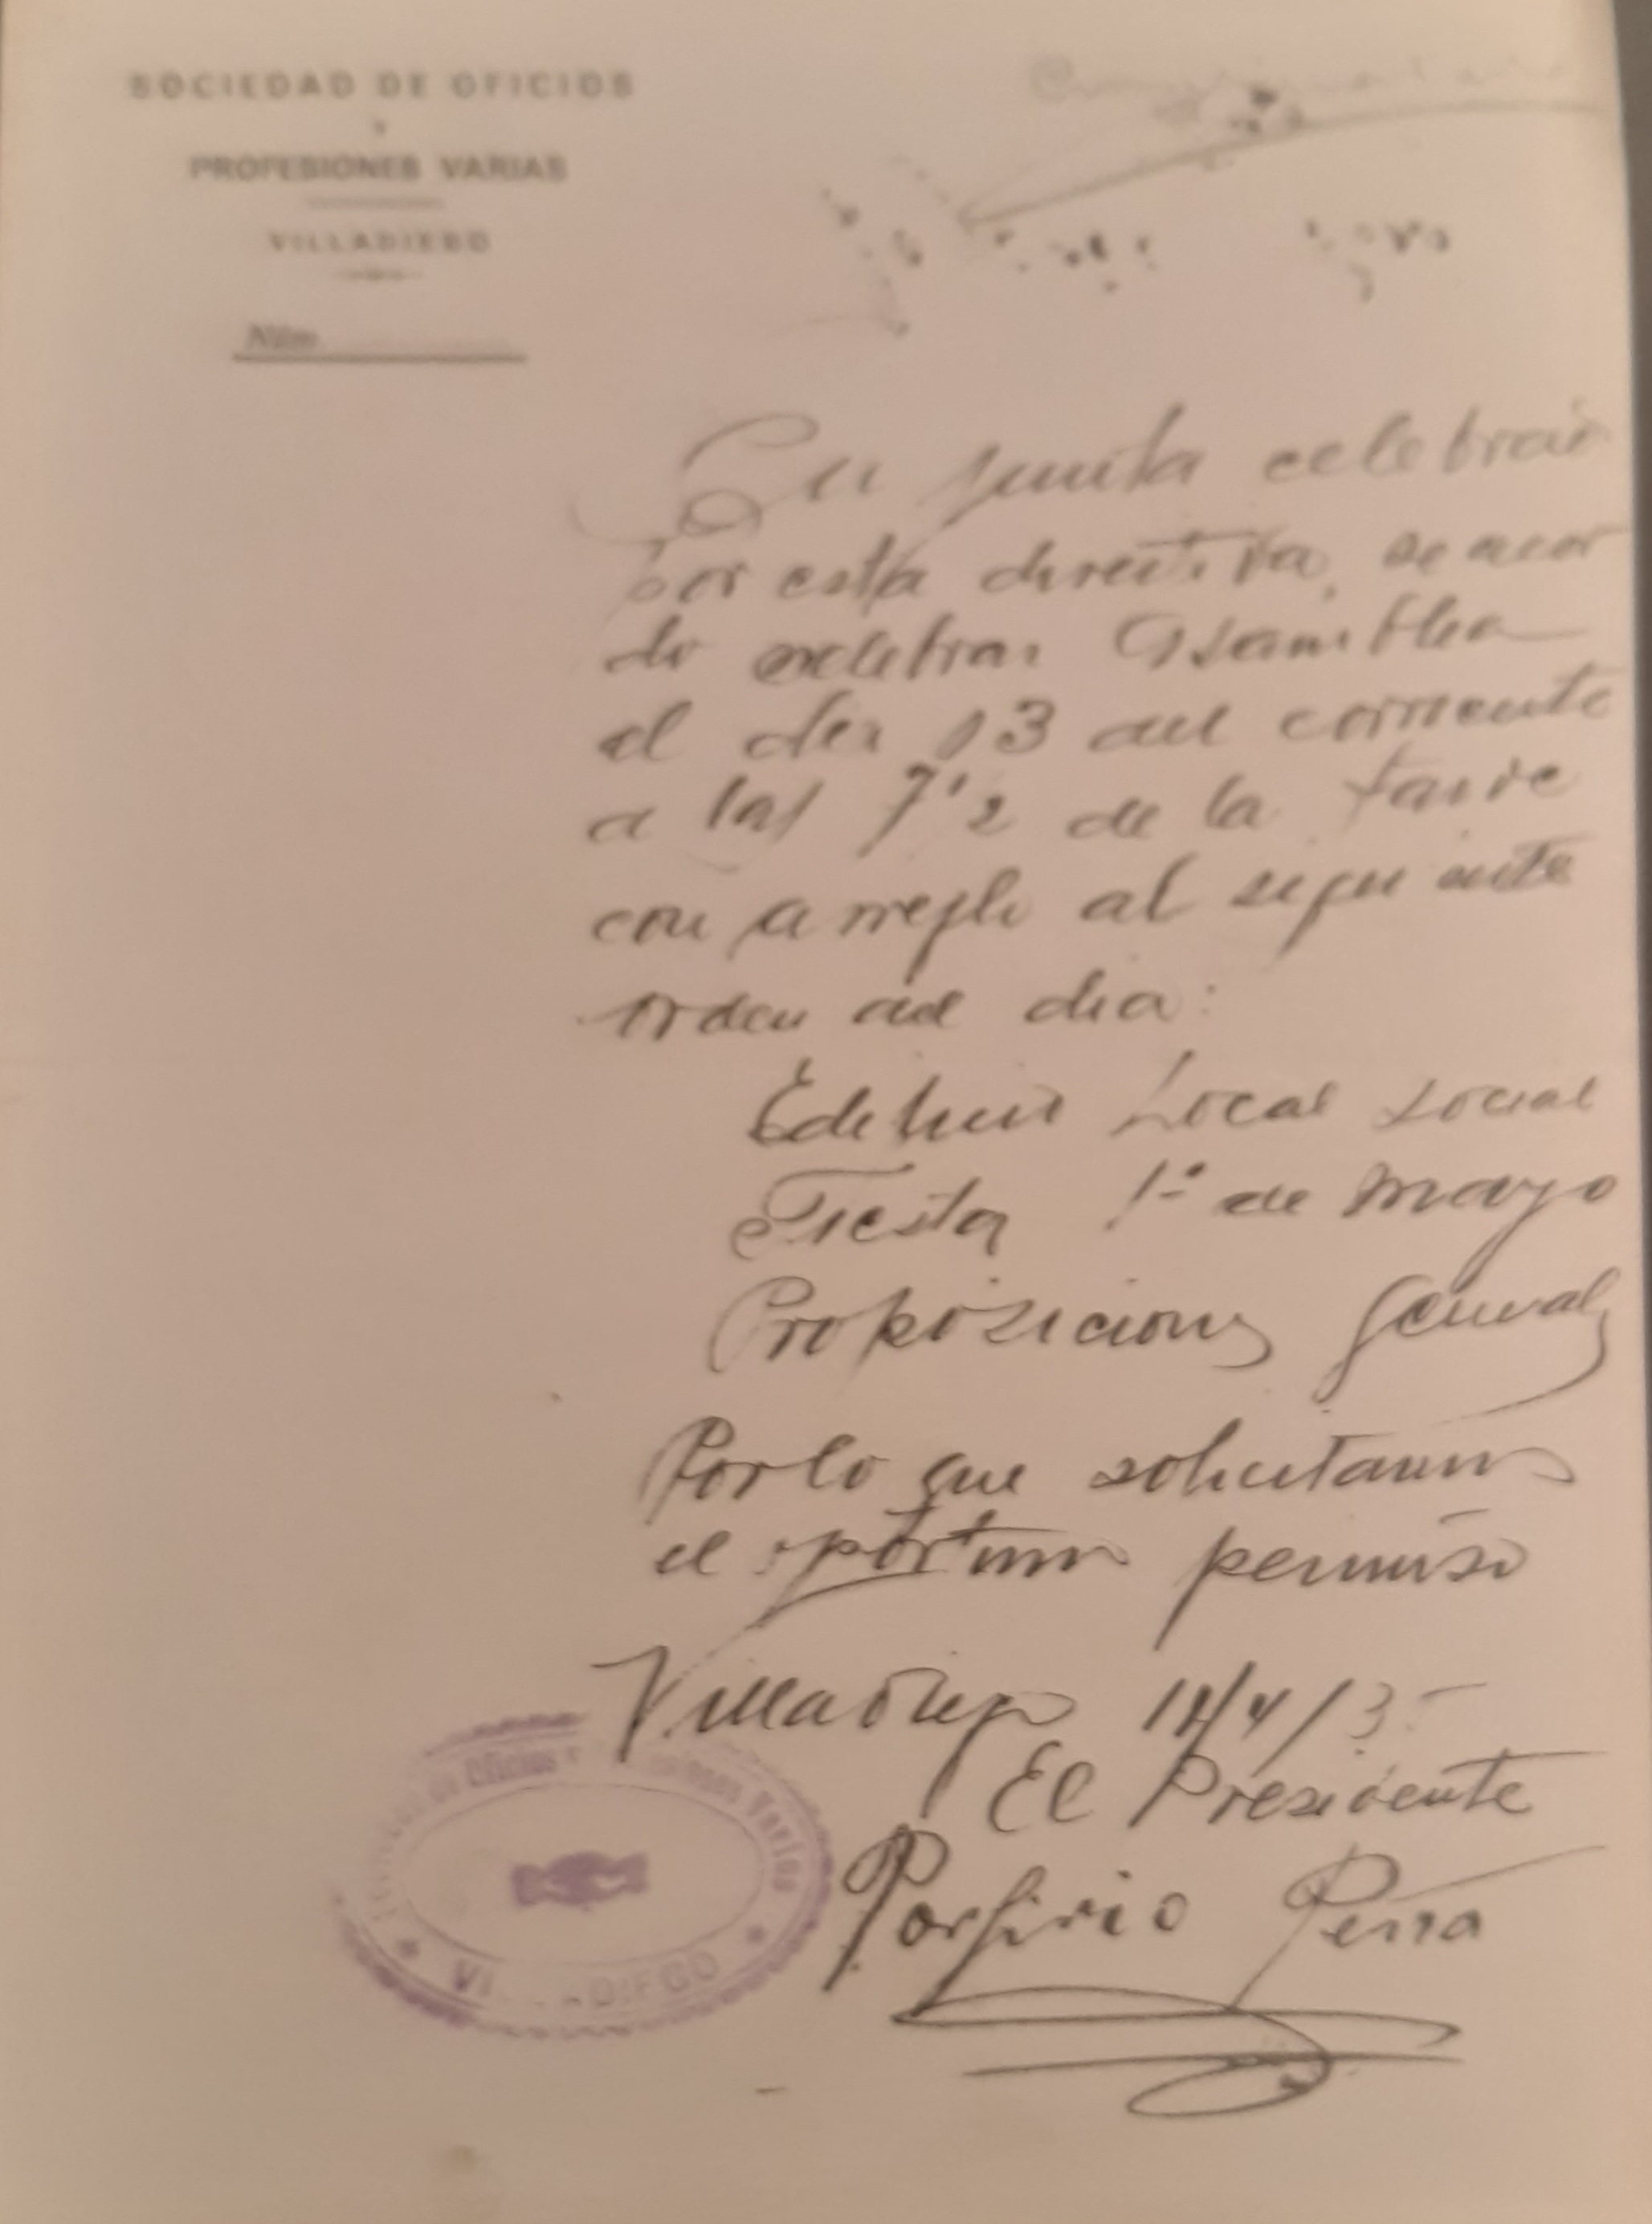 SOCIEDAD DE OFICIOS
Y
PROFESIONES VARIAS
VILLADIEGO
Núm.
En junta celebrad
por esta directiva, se acor
do celebrar Asamblea
el dia 13 del corriente
a las 7'2 de la tarde
con arreglo al siguiente
orden del dia:
Local social
Fiesta 1º de Mayo
Proposiciones Generales
Por lo que solicitamos
el oportuno permiso
Villadiego
El Presidente
Porfirio Peña
de Oficios y Varias
VILLADIEGO